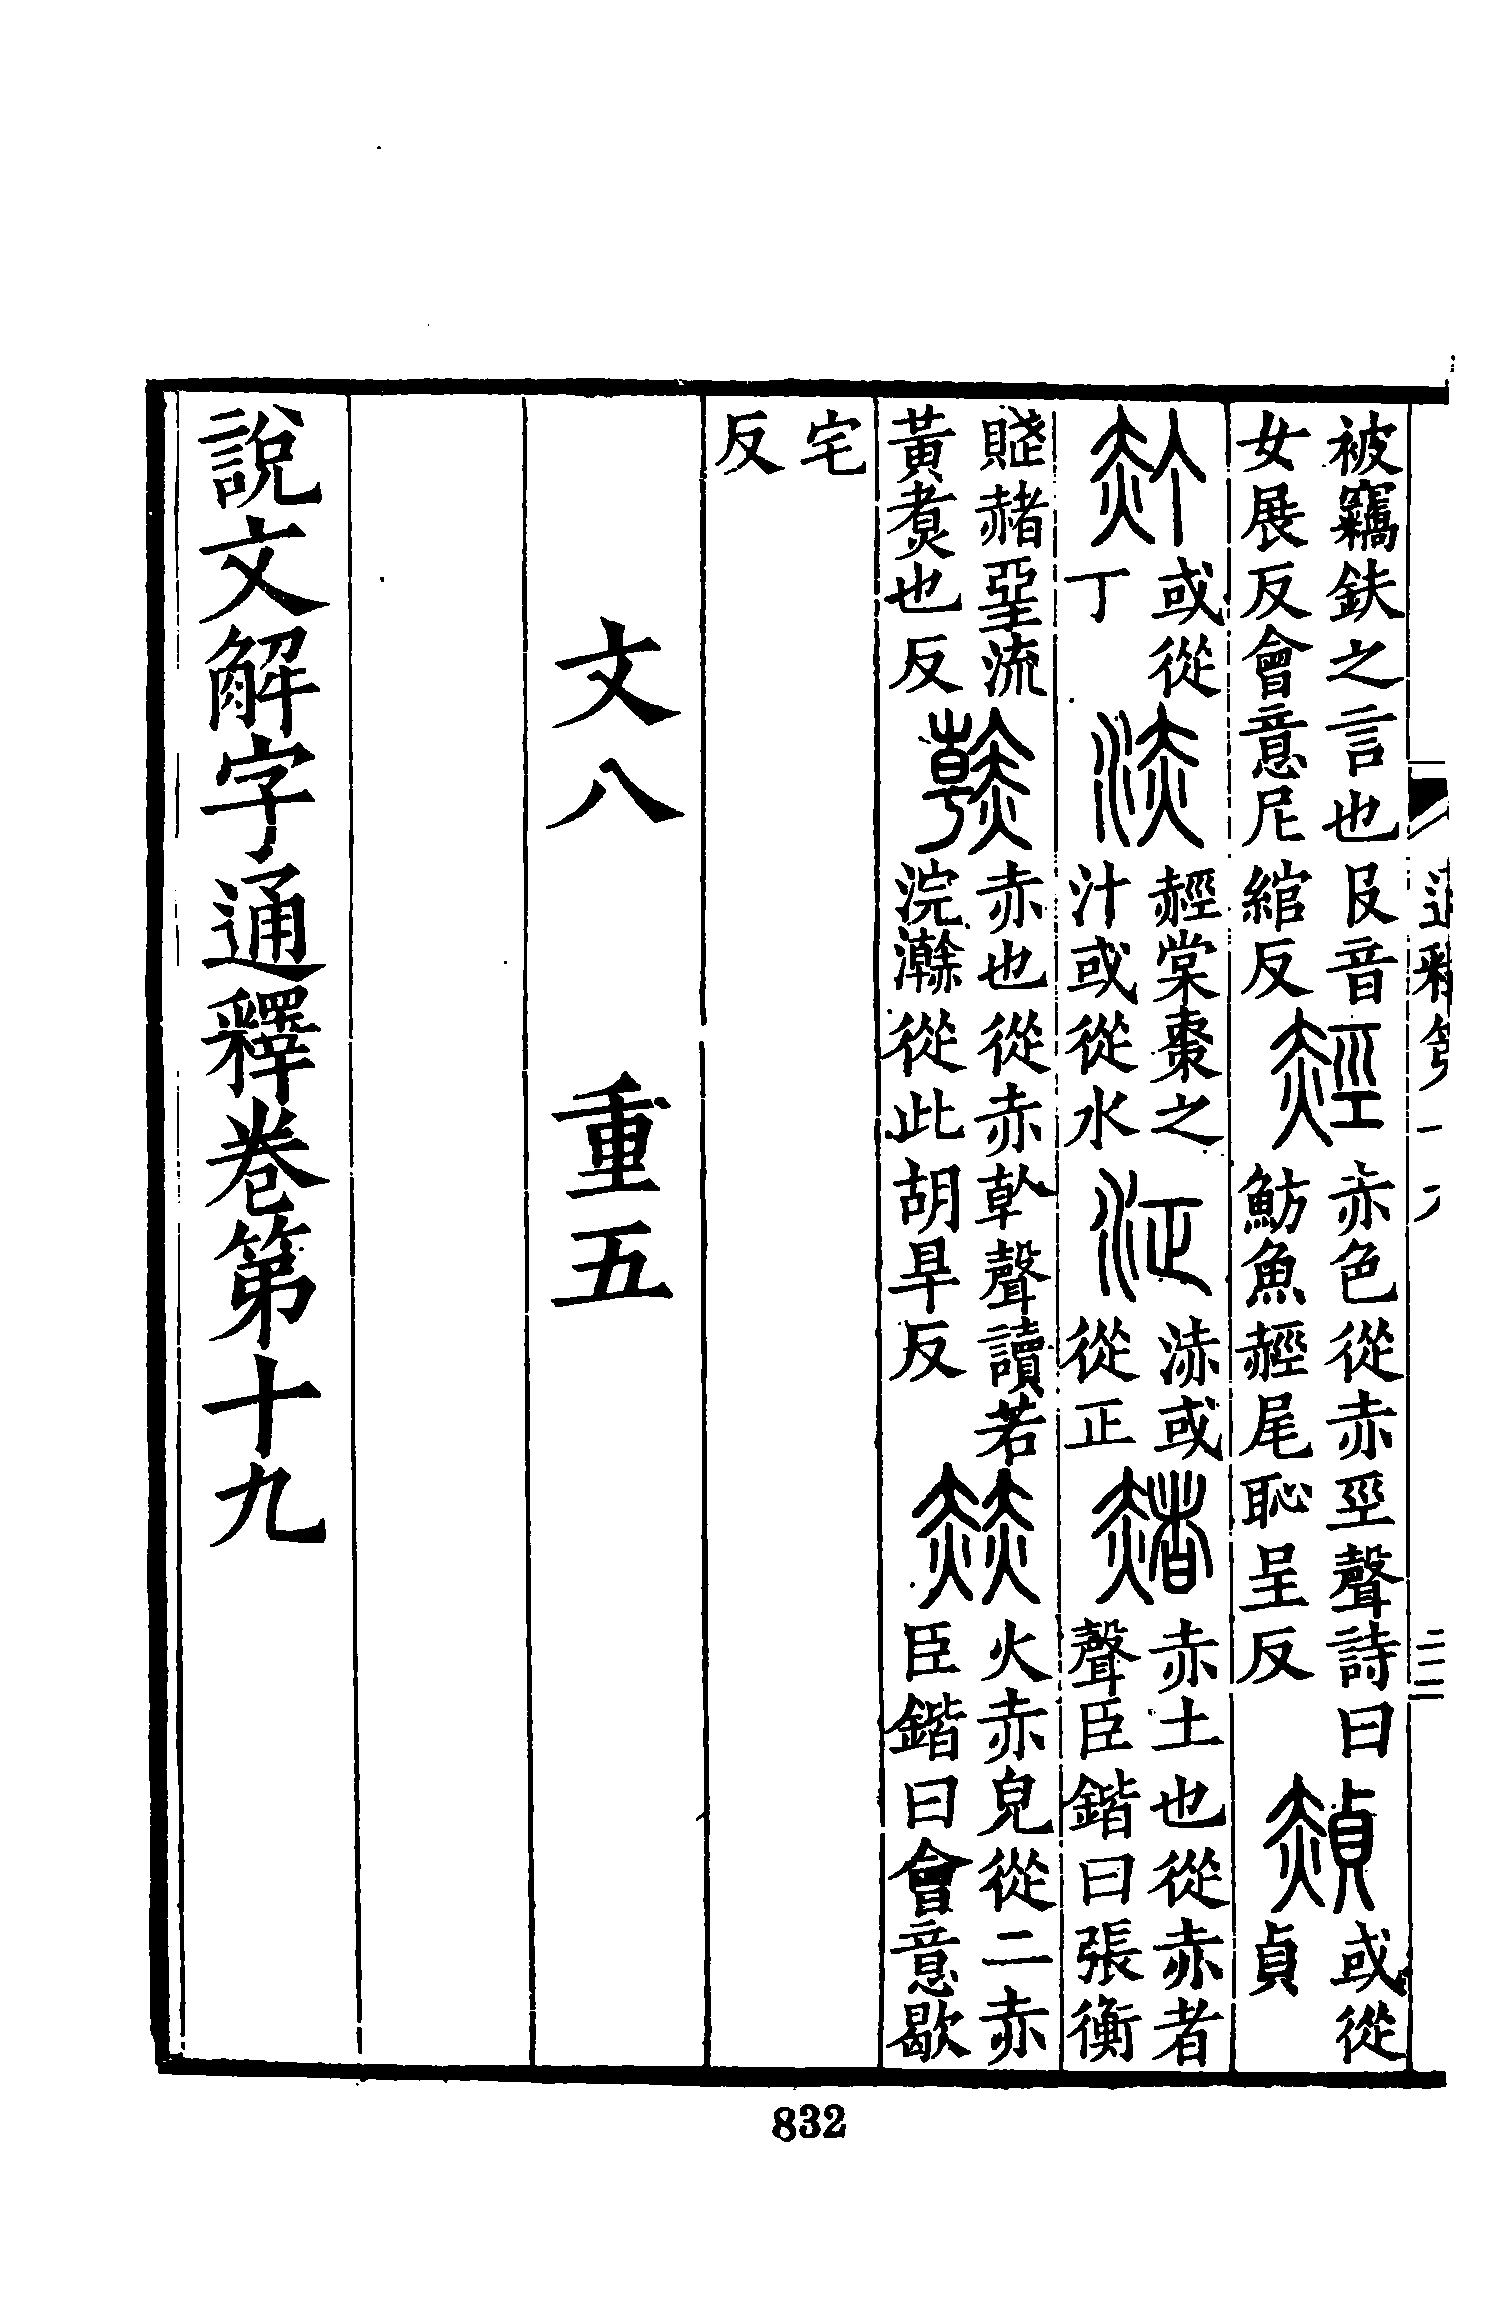 被竊鈇之言也𠬝音
女展反會意尼綰反
䞓
赤色從赤巠聲詩曰
魴魚䞓尾恥呈反
䞉
或從
貞
𧹙
或從
丁
浾
䞓棠棗之
汁或從水
泟
浾或
從正
赭
赤土也從赤者
聲臣鍇曰張衡
賦赭堊流
黃煮也反
𧹳
赤也從赤倝聲讀若
浣瀚從此胡旱反
赫
火赤皃從二赤
臣鍇曰會意歇
宅
反
文八 重五
說文解字通釋卷第十九
通釋第十九
二二
832